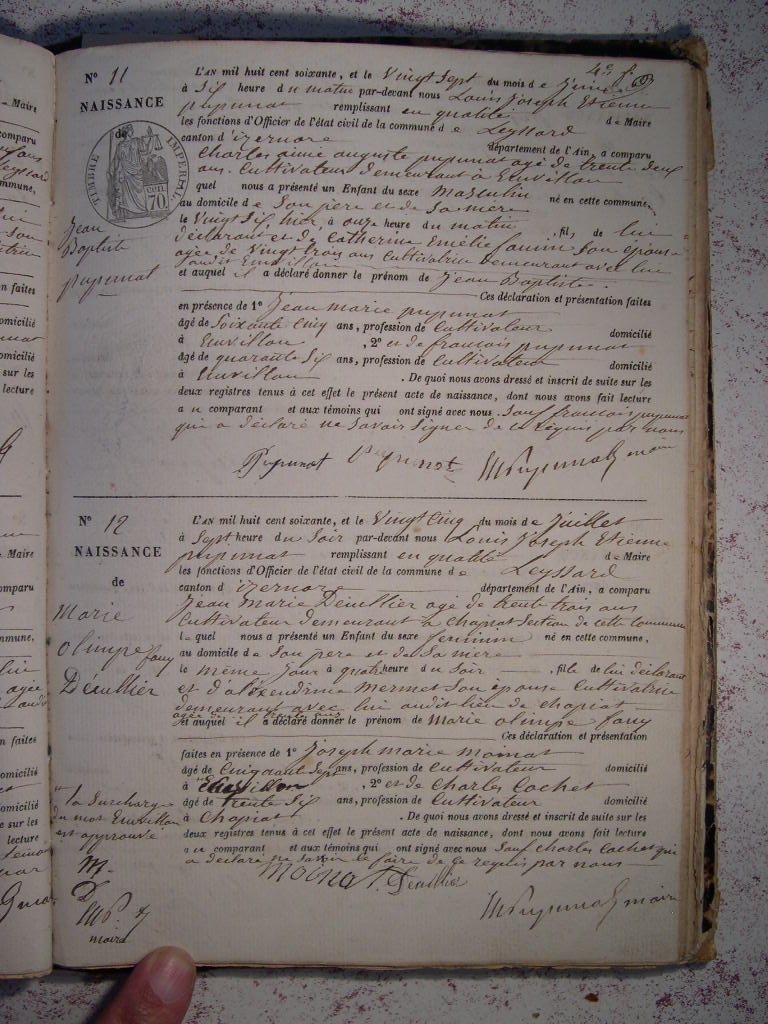 4e f.
N° 11
NAISSANCE
de
TIMBRE IMPÉRIAL
70
Jean
Baptiste
pupunat
L'AN mil huit cent soixante, et le Vingt Sept du mois de Juin
à Six heure du matin par-devant nous Louis Joseph Etienne
pupunat remplissant en qualité de Maire
les fonctions d'Officier de l'état civil de la commune de Leyssard
canton d'izernore département de l'Ain, a comparu
Charles aimé auguste pupunat agé de trente deux
ans. Cultivateur demeurant à Euvillon
quel nous a présenté un Enfant du sexe Masculin né en cette commune,
au domicile de Son père et de Sa mère
le Vingt Six, à onze heure du matin, fils de lui
déclarant et de Catherine Emélie Son épouse
agée de Vingt trois ans Cultivatrice demeurant avec lui
Euvillon
et auquel il a déclaré donner le prénom de Jean Baptiste
Ces déclaration et présentation faites
en présence de 1° Jean Marie pupunat
âgé de Soixante Cinq ans, profession de Cultivateur domicilié
à Euvillon, 2° et de françois pupunat
âgé de quarante Six ans, profession de Cultivateur domicilié
à Euvillon. De quoi nous avons dressé et inscrit de suite sur les
deux registres tenus à cet effet le présent acte de naissance, dont nous avons fait lecture
au comparant et aux témoins qui ont signé avec nous Sauf francois pupunat
qui a déclaré ne Savoir Signer de ce requis par nous
Pupunat Pupunat Pupunat maire
N° 12
NAISSANCE
de
Marie
olimpe fany
Décullier
L'AN mil huit cent soixante, et le Vingt Cinq du mois de Juillet
à Sept heure du Soir par-devant nous Louis Joseph Etienne
pupunat remplissant en qualité de Maire
les fonctions d'Officier de l'état civil de la commune de Leyssard
canton d'izernore département de l'Ain, a comparu
Jean Marie Décullier agé de trente trois ans
Cultivateur demeurant à Chapiat Section de cette Commune
lequel nous a présenté un Enfant du sexe feminin né en cette commune,
au domicile de Son père et de Sa mère
le même jour à quatre heure du Soir, fille de lui déclarant
et d'aléxendrine Mermet Son épouse Cultivatrice
demeurant avec lui audit lieu de chapiat
agée de trente
et auquel il a déclaré donner le prénom de Marie olimpe fany
Ces déclaration et présentation
faites en présence de 1° Joseph Marie Moinat
âgé de Cinquante Sept ans, profession de Cultivateur domicilié
à Euvillon, 2° et de Charles Cochet
âgé de trente Six ans, profession de Cultivateur domicilié
à Chapiat. De quoi nous avons dressé et inscrit de suite sur les
deux registres tenus à cet effet le présent acte de naissance, dont nous avons fait lecture
au comparant et aux témoins qui ont signé avec nous Sauf Charles Cochet qui
a déclaré ne Savoir le faire de ce requis par nous
la Surcharge
du mot Euvillon
est approuvé
M.
D
maire
Moinat Décullier
Pupunat maire